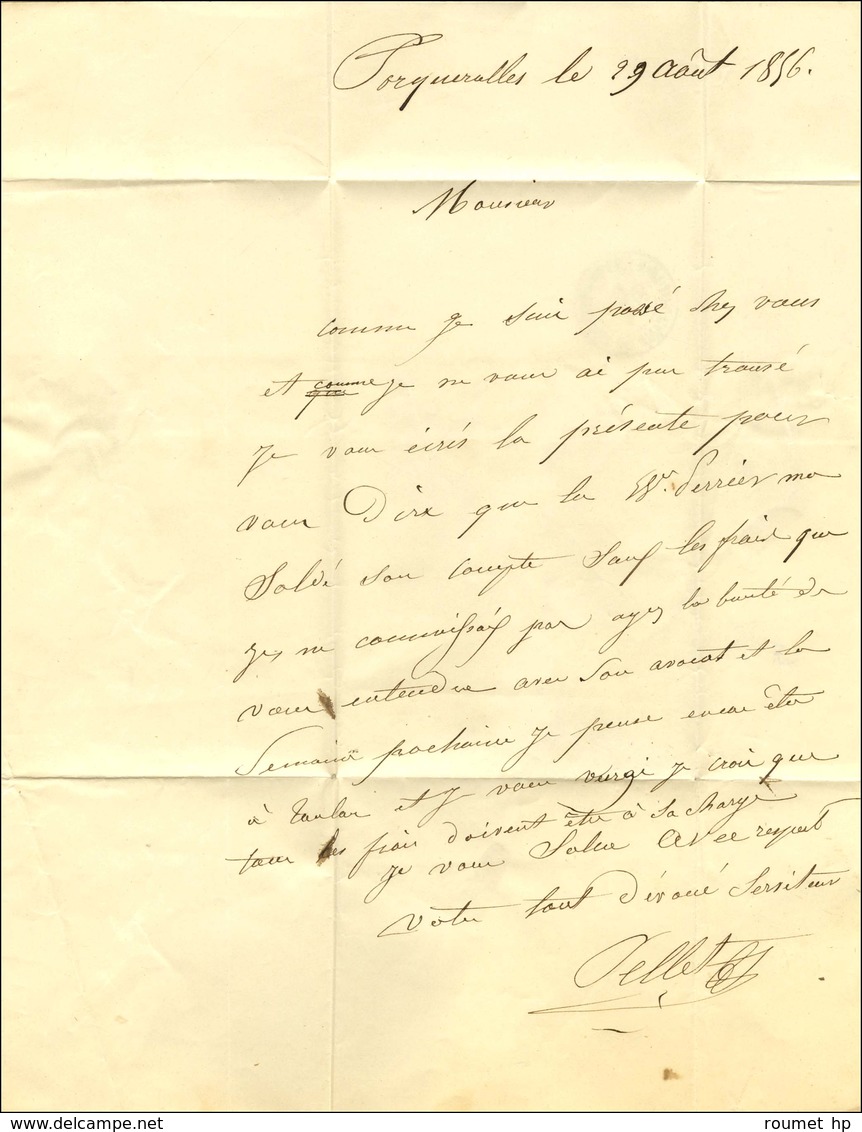 Porquerolles le 29 août 1856.
Monsieur
comme je suis passé chez vous
et comme je ne vous ai pas trouvé
je vous écris la présente pour
vous Dire que la Ve. Perrier ma
Soldé son compte Sauf les frais que
je ne connoissais pas ayez la bonté de
vous entendre avec Son avocat et la
Semaine prochaine je pense encore être
à Toulon et je vous je crois que
tous les frais doivent être à Sa charge
je vous Salue avec respect
votre tout Dévoué Serviteur
Pellet
roumet hp